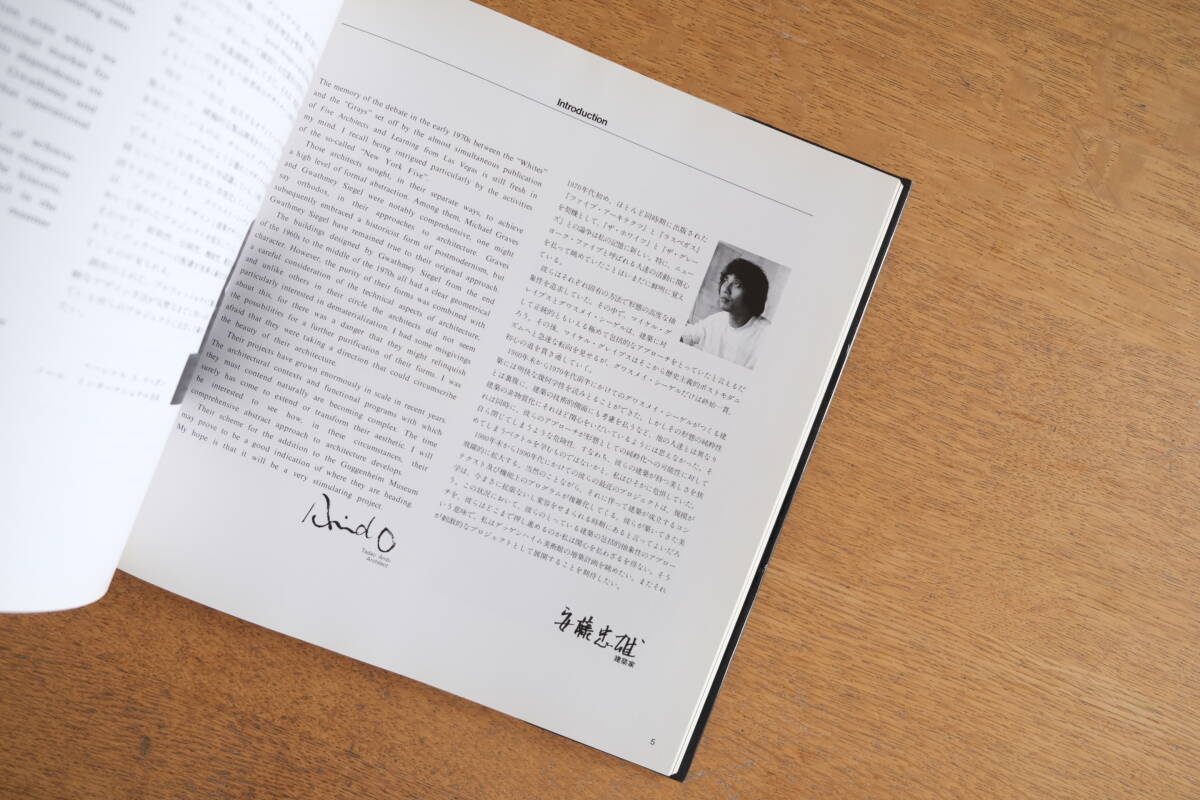 Introduction
The memory of the debate in the early 1970s between the "Whites"
and the "Grays" set off by the almost simultaneous publication
of Five Architects and Learning from Las Vegas is still fresh in
my mind. I recall being intrigued particularly by the activities
of the so-called "New York Five".
Those architects sought, in their separate ways, to achieve
a high level of formal abstraction. Among them, Michael Graves
and Gwathmey Siegel were notably comprehensive, one might
say orthodox, in their approaches to architecture. Graves
subsequently embraced a historicist form of postmodernism, but
Gwathmey Siegel have remained true to their original approach.
The buildings designed by Gwathmey Siegel from the end
of the 1960s to the middle of the 1970s all had a clear geometrical
character. However, the purity of their forms was combined with
a careful consideration of the technical aspects of architecture,
and unlike others in their circle the architects did not seem
particularly interested in dematerialization. I had some misgivings
about this, for there was a danger that they might relinquish
the possibilities for a further purification of their forms. I was
afraid that they were taking a direction that could circumscribe
the beauty of their architecture.
Their projects have grown enormously in scale in recent years.
The architectural contexts and functional programs with which
they must contend naturally are becoming complex. The time
surely has come to extend or transform their aesthetic. I will
be interested to see how, in these circumstances, their
comprehensive abstract approach to architecture develops.
Their scheme for the addition to the Guggenheim Museum
may prove to be a good indication of where they are heading
My hope is that it will be a very stimulating project.
Ando
Tadao Ando
Architect
1970年代初め、ほとんど同時期に出版された
『ファイブ・アーキテクツ』と『ラスベガス』
を契機として、「ザ・ホワイツ」と「ザ・グレー
ズ」との論争は私の記憶に新しい。特に、ニュー
ヨーク・ファイブと呼ばれる人達の活動に関心
を払って眺めていたことはいまだに鮮明に覚え
ている。
彼らはそれぞれ固有の方法で形態の高度な抽
象性を追求していた。その中で、マイケル・グ
レイブスとグワスメイ・シーゲルは、建築に対
して正統的ともいえる極めて包括的なアプローチをとっていたと言えるだ
ろう。その後、マイケル・グレイブスはそこから歴史主義的ポストモダニ
ズムへと急速な転向を見せるが、グワスメイ・シーゲルだけは終始一貫、
初心の道を貫き通していく。
1960年末から1970年代前半にかけてのグワスメイ・シーゲルがつくる建
築には明快な幾何学性を読みとることができた。しかしその形態の純粋性
とは裏腹に、建築の技術的側面にも考慮を払うなど、他の人達とは異なり
建築の非物質化にそれほど関心をいだいているようには思えなかった。そ
れは同時に、彼らのアプローチが形態としての純粋化への可能性に対して
自ら閉じてしまうような危険性、すなわち、彼らの建築が持つ美しさを狭
めてしまうベクトルを学むものではないかと、私はひそかに危惧していた。
1980年末から1990年代にかけての彼らの最近のプロジェクトは、規模が
飛躍的に拡大する。当然のことながら、それに伴って建築が成立するコン
テクスト及び機能上のプログラムが複雑化してくる。彼らが築いてきた美
学は、今まさに拡張ないし変容をせまられる時期にあると言ってよいだろ
う。この状況において、彼らのとっている建築の包括的抽象性のアプロー
チを、彼らはどこまで押し進めるのか私は関心を払わざるを得ない。そう
いう意味で、私はグッゲンハイム美術館の増築計画を眺めたい。またそれ
が刺激的なプロジェクトとして展開することを期待したい。
安藤忠雄
建築家
5